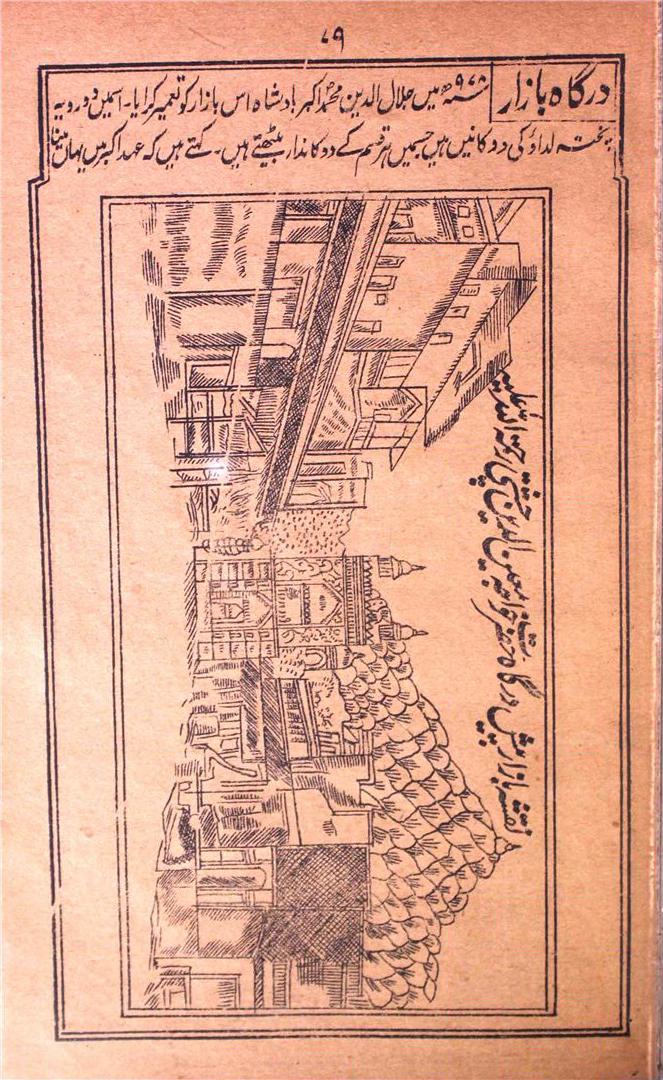 ۷۹
درگاہ بازار
۹۷۸ھ میں جلال الدین محمد اکبر بادشاہ اس بازار کو تعمیر کرایا۔ اسمیں دو رویہ
پختہ لداؤ کی دوکانیں ہیں جسمیں ہر قسم کے دوکاندار بیٹھتے ہیں۔ کہتے ہیں کہ عہد اکبر میں یہاں مینا
نقشہ بازار پیش درگاہ حضرت خواجہ معین الدین چشتی